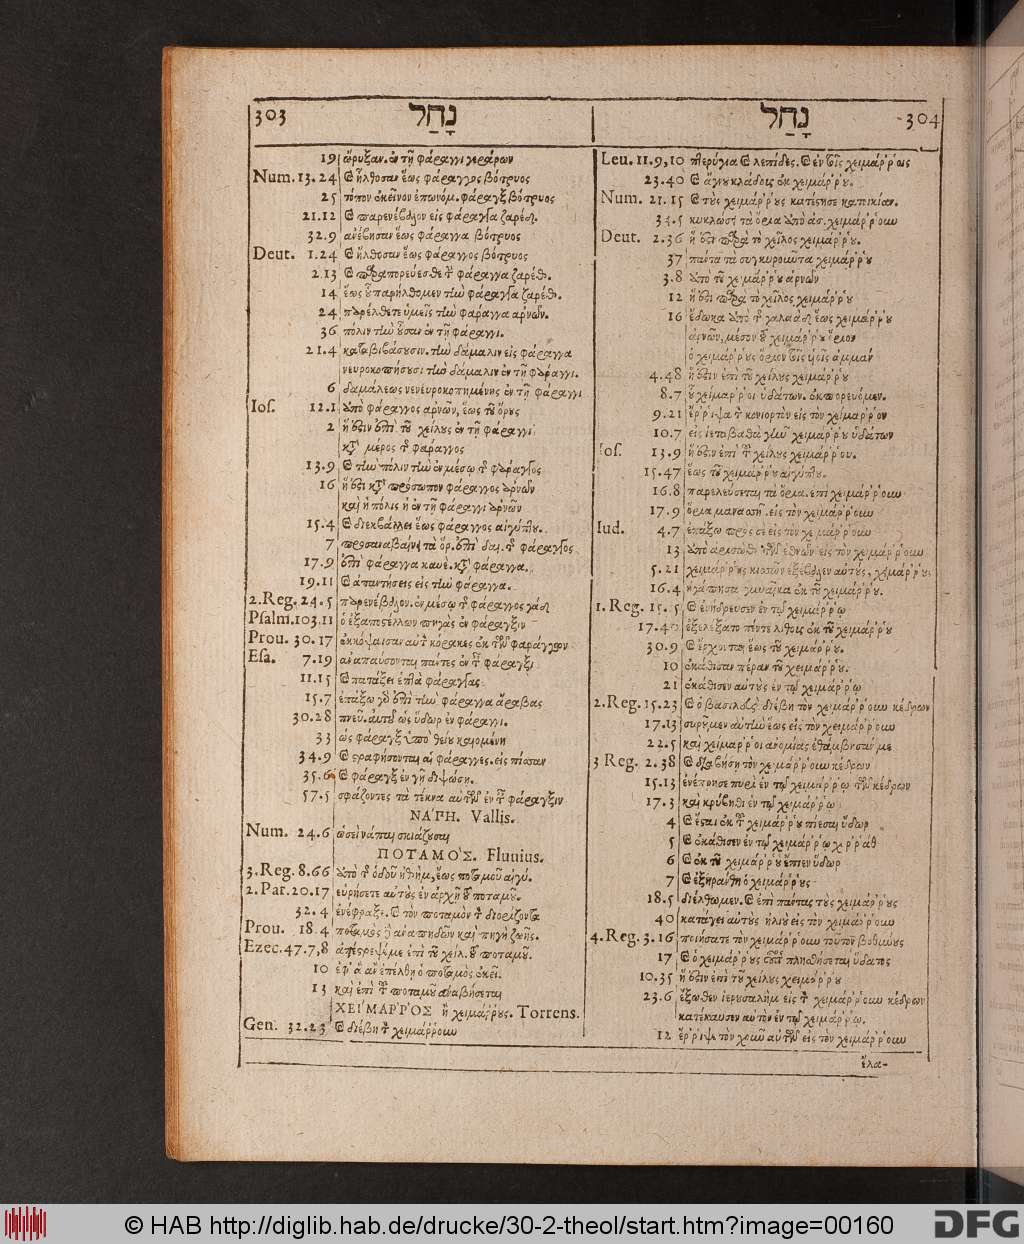 303 נָחַל
19 ὤρυξαν. ἐν τῇ φάραγγι γεράρων
Num. 13.24 ϗ ἤλθοσαν ἕως φάραγγος βότρυος
25 τόπον ἐκεῖνον ἐπωνόμ. φάραγξ βότρυος
21.12 ϗ παρενέβαλον εἰς φάραγγα ζαρέδ.
32.9 ἀνέβησαν ἕως φάραγγα βότρυος
Deut. 1.24 ϗ ἤλθοσαν ἕως φάραγγος βότρυος
2.13 ϗ παραπορεύεσθε τ φάραγγα ζαρέδ.
14 ἕως οὗ παρήλθομεν τὴν φάραγγα ζαρέδ.
24 παρέλθετε ὑμεῖς τὴν φάραγγα ἀρνῶν.
36 πόλιν τὴν οὖσαν ἐν τῇ φάραγγι.
21.4 καταβιβάσουσιν. τὴν δάμαλιν εἰς φάραγγα
νευροκοπήσουσι τὴν δάμαλιν ἐν τῇ φάραγγι.
6 δαμάλεως νενευροκοπημένης ἐν τῇ φάραγγι
Ios. 12.1 ἀπὸ φάραγγος ἀρνῶν, ἕως τοῦ ὄρους
2 ἥ ἐστιν ἐπὶ τοῦ χείλους ἐν τῇ φάραγγι
κτ μέρος τ φάραγγος
13.9 ϗ τὴν πόλιν τὴν ἐν μέσῳ τ φάραγγος
16 ἥ ἐστι κτ πρόσωπον φάραγγος ἀρνῶν
καὶ ἡ πόλις ἡ ἐν τῇ φάραγγι ἀρνῶν
15.4 ϗ διεκβάλλει ἕως φάραγγος αἰγύπτου.
7 προσαναβαίνει τὰ ὅρ. ἐπὶ δαβ. τ φάραγγος
17.9 ἐπὶ φάραγγα κανέ. κτ φάραγγα.
19.11 ϗ ἀπαντήσεις εἰς τὴν φάραγγα.
2.Reg. 24.5 παρενέβαλον. ἐν μέσῳ τ φάραγγος γάδ
Psalm. 103.11 ὁ ἐξαποστέλλων πηγὰς ἐν φάραγξιν
Prou. 30.17 ἐκκόψαισαν αὐτ κόρακες ἐκ τῶν φαράγγων
Esa. 7.19 ἀναπαύσονται πάντες ἐν τ φάραγξι
11.15 ϗ πατάξει ἑπτὰ φάραγγας
15.7 ἐπάξω γὸ ἐπὶ τὴν φάραγγα ἄραβας
30.28 πνεῦ. αὐτοῦ ὡς ὕδωρ ἐν φάραγγι.
33 ὡς φάραγξ ὑπὸ θείου καιομένη
34.9 ϗ στραφήσονται αἱ φάραγγες. εἰς πίσσαν
35.6 ϗ φάραγξ ἐν γῇ διψώσῃ.
57.5 σφάζοντες τὰ τέκνα αὐτῶν ἐν τ φάραγξιν
ΝΑΠΗ. Vallis.
Num. 24.6 ὡσεὶ νάπαι σκιάζουσαι
ΠΟΤΑΜΟΣ. Fluuius.
3.Reg. 8.66 ἀπὸ τ ὁδοῦ ἠθὴμ, ἕως ποταμοῦ αἰγύ.
2.Par. 20.17 εὑρήσετε αὐτοὺς ἐν ἀρχῇ τ ποταμοῦ.
32.4 ἐνέφραξε. ϗ τὸν ποταμὸν τ διορίζοντα
Prou. 18.4 ποταμὸς ἀναπηδῶν καὶ πηγὴ ζωῆς.
Ezec. 47.7,8 ἀπέστρεψέ με ἐπὶ τοῦ χείλ. τ ποταμοῦ.
10 ἐφ᾽ ἃ ἂν ἐπέλθῃ ὁ ποταμὸς ἐκεῖ.
13 καὶ ἐπὶ τ ποταμοῦ ἀναβήσεται
ΧΕΙΜΑΡΡΟΣ ἢ χειμάῤῥους. Torrens.
Gen. 32.23 ϗ διέβη τ χειμάῤῥουν
נָחַל 304
Leu. 11.9,10 πτερύγια ϗ λεπίδες. ϗ ἐν τοῖς χειμάῤῥοις
23.40 ϗ ἄγνου κλάδους ἐκ χειμάῤῥου.
Num. 21.15 ϗ τοὺς χειμάῤῥους κατέστησε κατοικίαν.
34.5 κυκλώσει τὰ ὅρια ἀπὸ ἀσ. χειμάῤῥουν
Deut. 2.36 ἥ ἐστι παρὰ τὸ χεῖλος χειμάῤῥου.
37 πάντα τὰ συγκυροῦντα χειμάῤῥου
3.8 ἀπὸ τοῦ χειμάῤῥου ἀρνῶν
12 ἥ ἐστι παρὰ τὸ χεῖλος χειμάῤῥου
16 ἔδωκα ἀπὸ τ γαλαὰδ ἕως χειμάῤῥου
ἀρνῶν, μέσον τ χειμάῤῥου ὅριον
ὁ χειμάῤῥους ὅριον τοῖς υἱοῖς ἀμμάν
4.48 ἥ ἐστιν ἐπὶ τοῦ χείλους χειμάῤῥου
8.7 οὗ χειμάῤῥοι ὑδάτων. ἐκπορευόμεν.
9.21 ἔῤῥιψα τ κονιορτὸν εἰς τὸν χειμάῤῥον
10.7 εἰς ἰεταβαθὰ γῆν χειμάῤῥου ὑδάτων
Ios. 13.9 ἥ ἐστιν ἐπὶ τ χείλους χειμάῤῥου.
15.47 ἕως τοῦ χειμάῤῥου αἰγύπτου.
16.8 παρελεύσεται τὰ ὅρια. ἐπὶ χειμάῤῥουν
17.9 ὅρια μανασσῆ. εἰς τὸν χειμάῤῥουν
Iud. 4.7 ἐπάξω πρός σε εἰς τὸν χειμάῤῥουν
13 ἀπὸ ἀρισὼθ τῶν ἐθνῶν εἰς τὸν χειμάῤῥουν
5.21 χειμάῤῥους κισσῶν ἐξέβαλεν αὐτοὺς, χειμάῤῥους
16.4 ἠγάπησε γυναῖκα ἐκ τοῦ χειμάῤῥου.
1. Reg. 15.5 ϗ ἐνήδρευσεν ἐν τῷ χειμάῤῥῳ
17.40 ἐξελέξατο πέντε λίθους ἐκ τοῦ χειμάῤῥου
30.9 ϗ ἔρχονται ἕως τοῦ χειμάῤῥου.
10 ἐκάθισαν πέραν τοῦ χειμάῤῥου.
21 ἐκάθισεν αὐτοὺς ἐν τῷ χειμάῤῥῳ
2. Reg. 15.23 ϗ ὁ βασιλεὺς διέβη τὸν χειμάῤῥουν κέδρων
17.13 συροῦμεν αὐτὴν ἕως εἰς τὸν χειμάῤῥουν
22.5 καὶ χείμαῤῥοι ἀνομίας ἐθάμβησάν με
3 Reg. 2.38 ϗ διαβήσῃ τὸν χειμάῤῥουν κέδρων
15.13 ἐνέπρησε πυρὶ ἐν τῷ χειμάῤῥῳ τῶν κέδρων
17.3 καὶ κρύβηθι ἐν τῷ χειμάῤῥῳ
4 ϗ ἔσται ἐκ τ χειμάῤῥου πίεσαι ὕδωρ
5 ϗ ἐκάθισεν ἐν τῷ χειμάῤῥῳ χοῤῥάθ
6 ϗ ἐκ τοῦ χειμάῤῥου ἔπινεν ὕδωρ
7 ϗ ἐξηράνθη ὁ χειμάῤῥους
18.5 διέλθωμεν. ϗ ἐπὶ πάντας τοὺς χειμάῤῥους
40 κατάγει αὐτοὺς ἠλιοὺ εἰς τὸν χειμάῤῥουν
4. Reg. 3.16 ποιήσατε τὸν χειμάῤῥουν τοῦτον βοθύνους
17 ϗ ὁ χειμάῤῥους οὗτος πλησθήσεται ὕδατος
10.35 ἥ ἐστιν ἐπὶ τοῦ χείλους χειμάῤῥου
23.6 ἔξωθεν ἱερουσαλὴμ εἰς τ χειμάῤῥουν κέδρων
κατέκαυσεν αὐτὸν ἐν τῷ χειμάῤῥῳ.
12 ἔῤῥιψε τὸν χοῦν αὐτῶν εἰς τὸν χειμάῤῥουν
ἔλα-
© HAB http://diglib.hab.de/drucke/30-2-theol/start.htm?image=00160
DFG